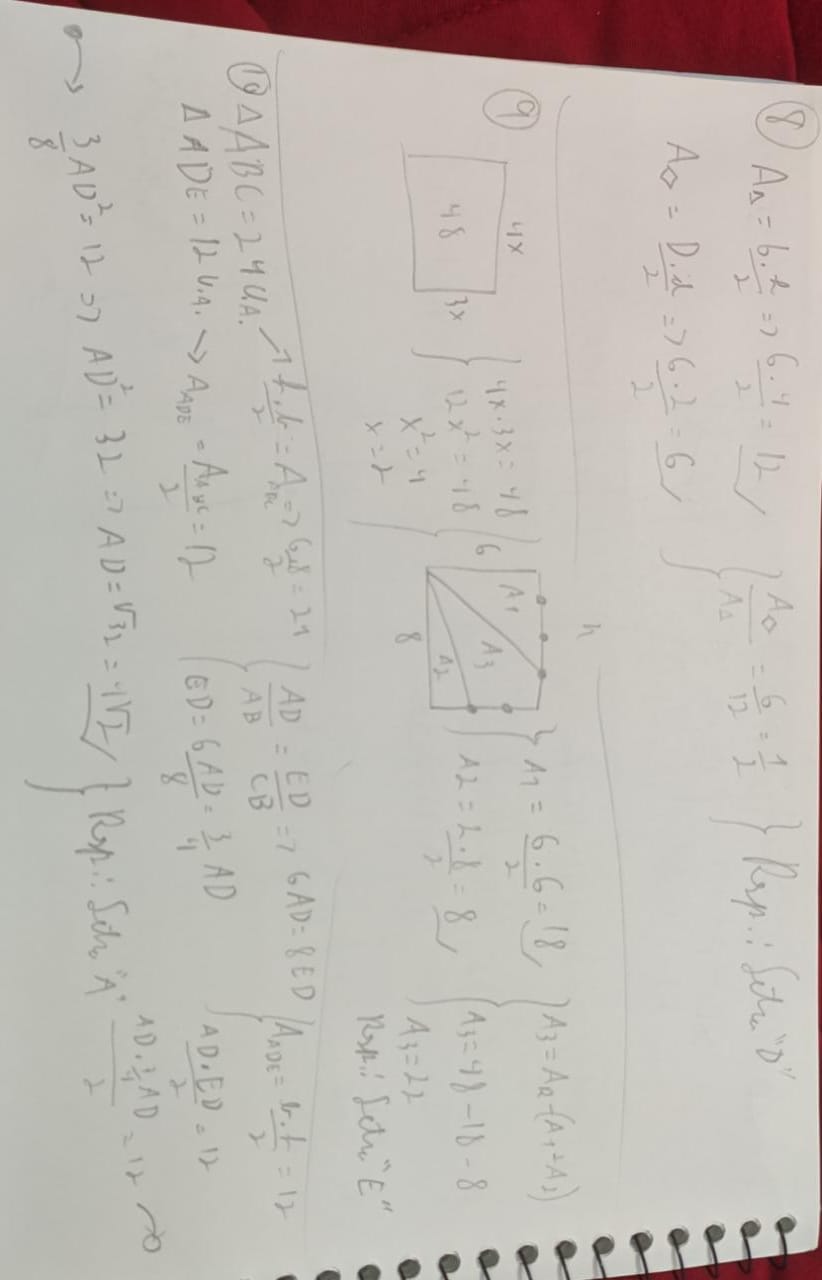 8 A△ = b.h/2 => 6.4/2 = 12 } A◇/A△ = 6/12 = 1/2 } Resp.: Letra "D"
A◇ = D.d/2 => 6.2/2 = 6
9 4x
48 3x
4x.3x = 48
12x² = 48
x² = 4
x = 2
6 A1 A3 A2
8
A1 = 6.6/2 = 18
A2 = 2.8/2 = 8
A3 = AR - (A1+A2)
A3 = 48 - 18 - 8
A3 = 22
Resp.: Letra "E"
10 △ABC = 24 U.A. → b.h/2 = AABC => 6.8/2 = 24
△ADE = 12 U.A. → AADE = AABC/2 = 12
AD/AB = ED/CB => 6AD = 8ED
ED = 6AD/8 = 3/4 AD
AADE = b.h/2 = 12
AD.ED/2 = 12
AD.3/4AD/2 = 12 →
→ 3/8 AD² = 12 => AD² = 32 => AD = √32 = 4√2 } Resp.: Letra "A"